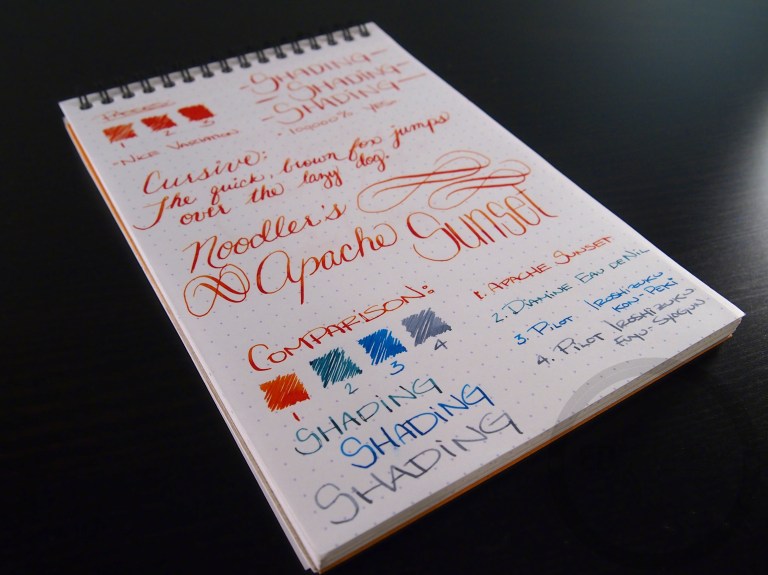 -SHADING-
-SHADING-
-SHADING-
1 2 3
-NICE VARIATION
Cursive:
The quick, brown fox jumps
over the lazy dog.
Noodler's
Apache Sunset
COMPARISON:
1 2 3 4
1. APACHE SUNSET
2. DIAMINE EAU DE NIL
3. PILOT IROSHIZUKU
KON-PEKI
4. PILOT IROSHIZUKU
FUYU-SYOGUN
SHADING
SHADING
SHADING